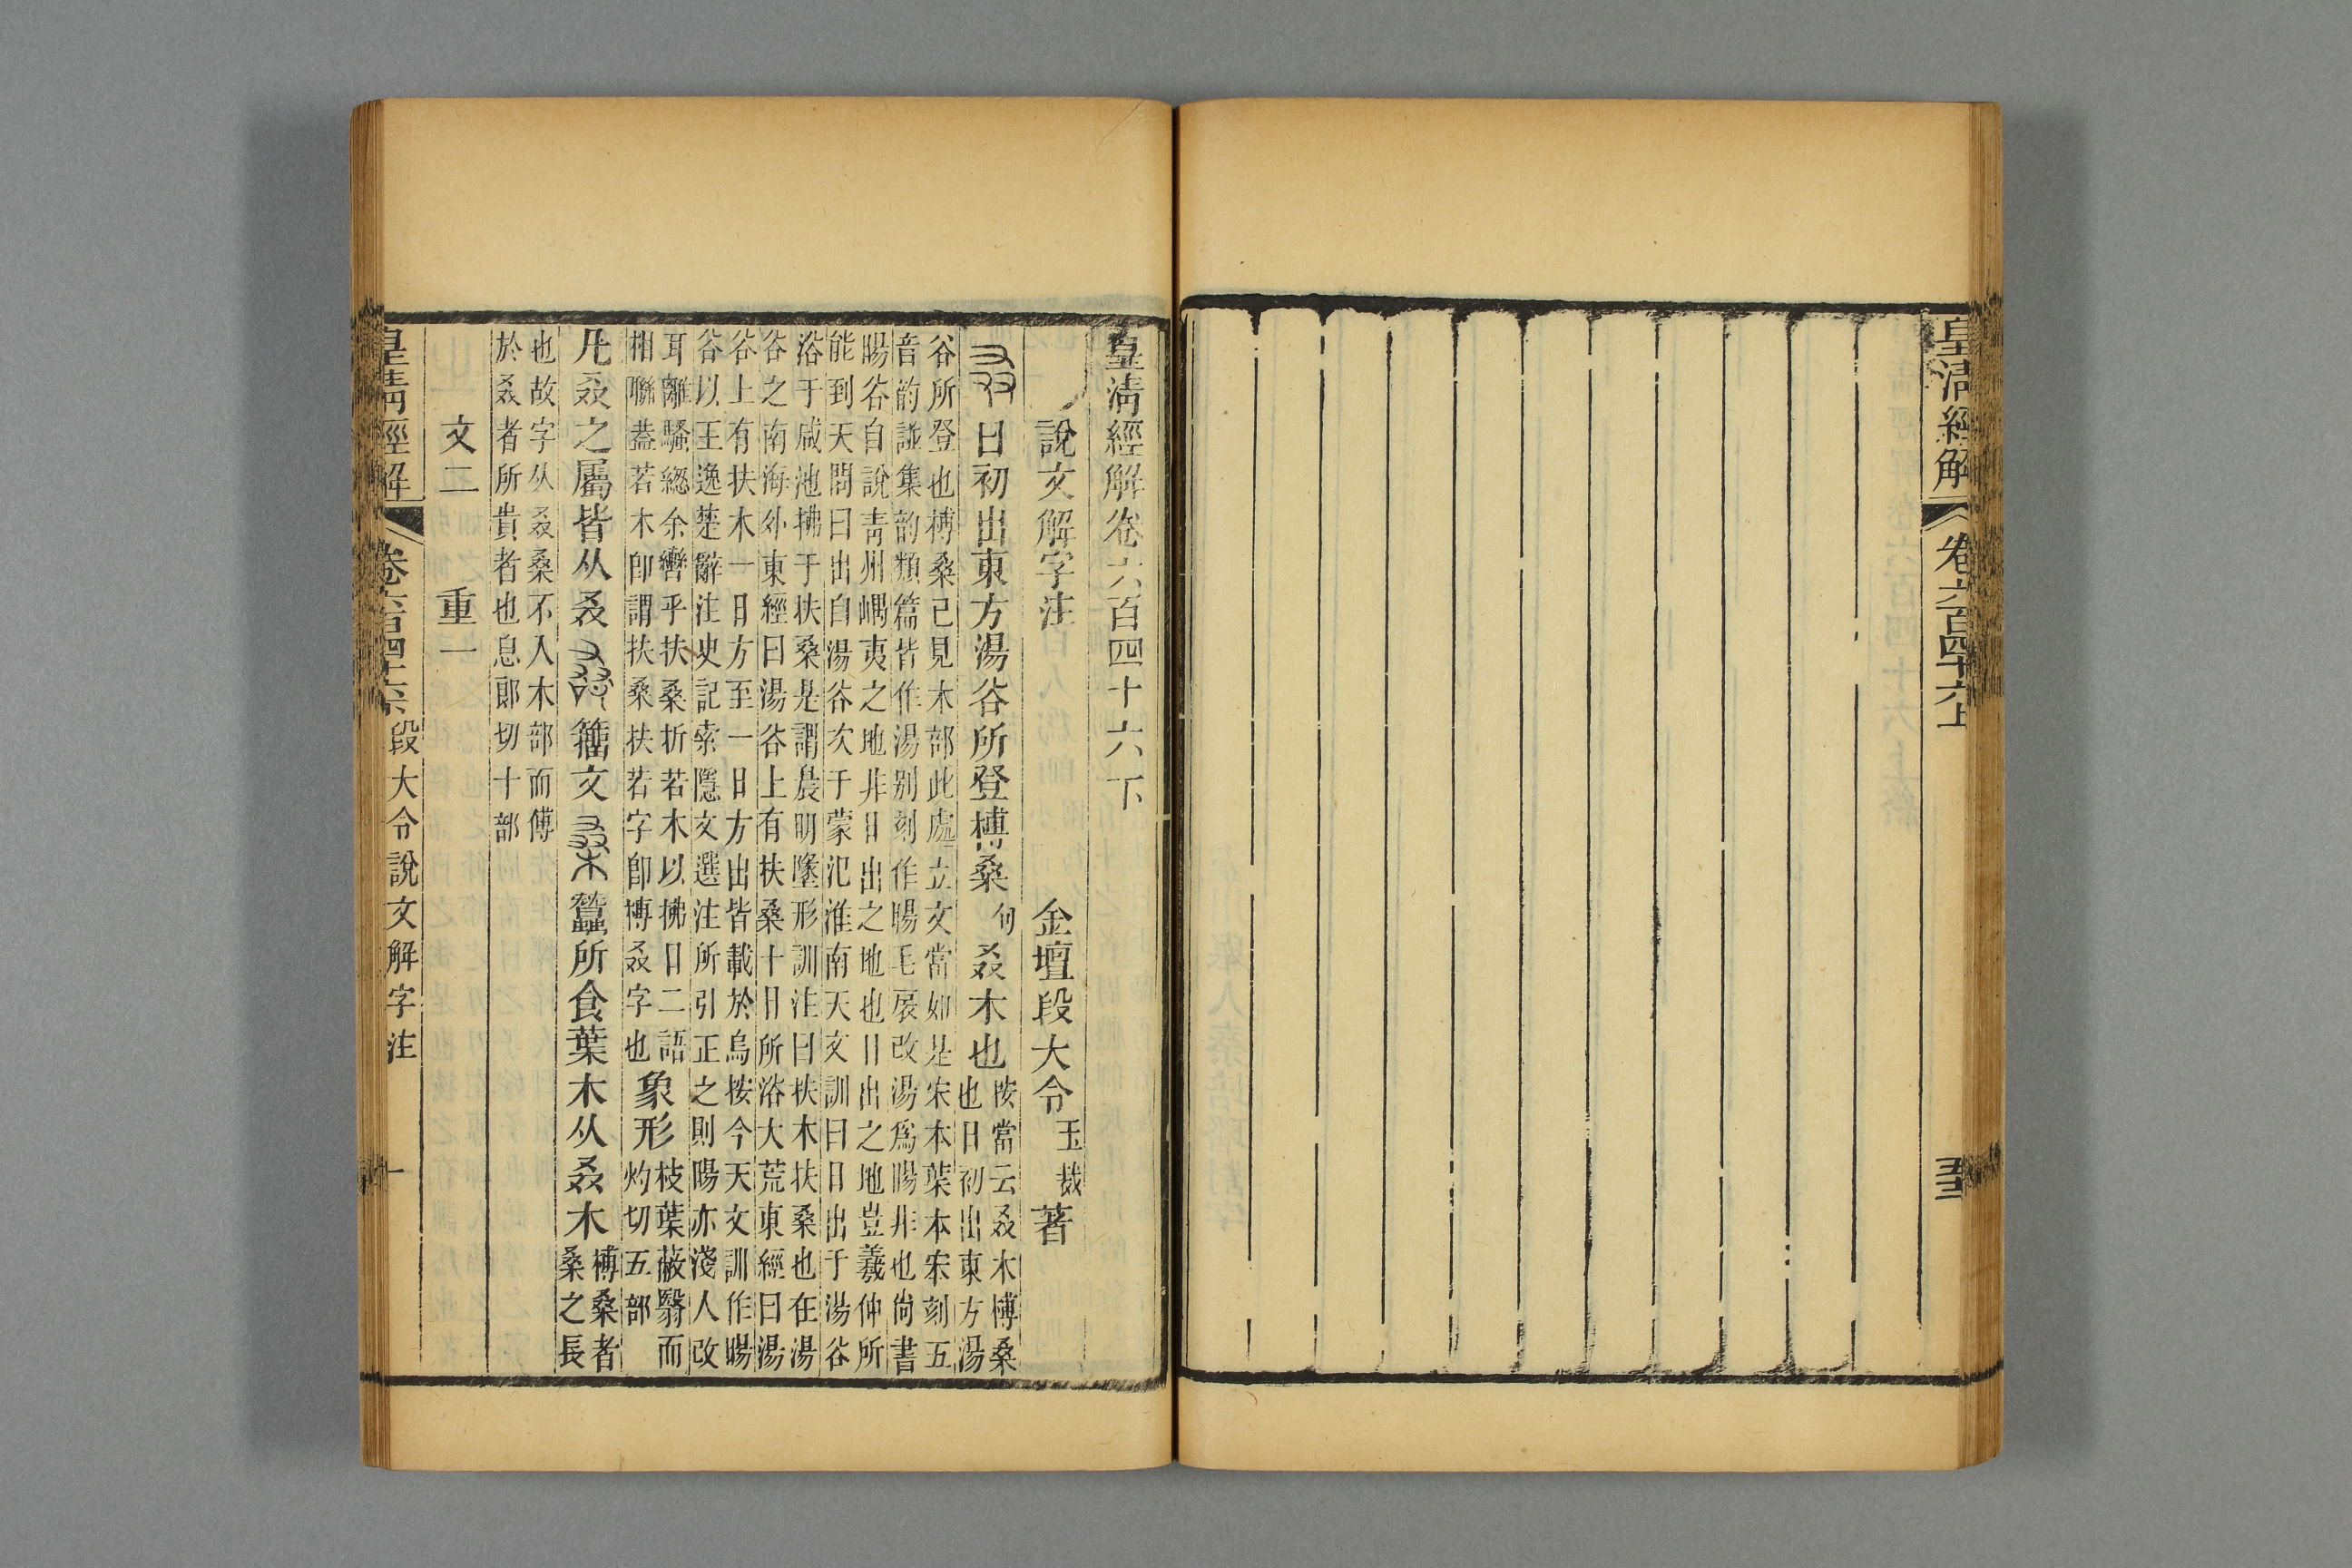 皇清經解 卷六百四十六上
皇清經解卷六百四十六下
說文解字注 金壇段大令玉裁著
日初出東方湯谷所登榑桑句叒木也按當云叒木榑桑
也日初出東方湯
谷所登也榑桑已見木部此處立文當如是宋本葉本宋刻五
音韵譜集韵類篇皆作湯別刻作暘毛扆改湯爲暘非也尙書
暘谷自說靑州嵎夷之地非日出之地也日出之地豈羲仲所
能到天問曰出自湯谷次于蒙汜淮南天文訓曰日出于湯谷
浴于咸池拂于扶桑是謂晨明墬形訓注曰扶木扶桑也在湯
谷之南海外東經曰湯谷上有扶桑十日所浴大荒東經曰湯
谷上有扶木一日方至一日方出皆載於烏按今天文訓作暘
谷以王逸楚辭注史記索隱文選注所引正之則暘亦淺人改
耳離騷緫余轡乎扶桑折若木以拂日二語
相聯葢若木卽謂扶桑扶若字卽榑叒字也象形枝葉蔽翳而
灼切五部
凡叒之屬皆从叒籒文
桑蠶所食葉木从叒木榑桑者
桑之長
也故字从叒桑不入木部而傅
於叒者所貴者也息郞切十部
文二 重一
皇清經解 卷六百四十六 段大令說文解字注 一